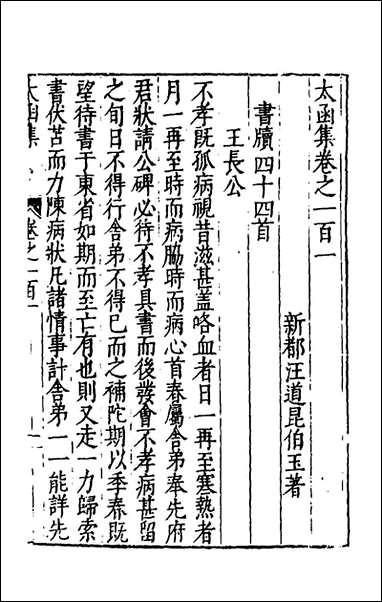 太函集卷之一百一
新都汪道昆伯玉著
書牘四十四首
王長公
不孝旣孤病視昔滋甚蓋咯血者日一再至寒熱者
月一再至時而病脇時而病心首春屬舍弟奉先府
君狀請公碑必待不孝具書而後發會不孝病甚留
之旬日不得行舍弟不得已而之補陀期以季春旣
望待書于東省如期而至亡有也則又走一力歸索
書伏苫而力陳病狀凡諸情事計舍弟一一能詳先
太函集
卷之一百一
一